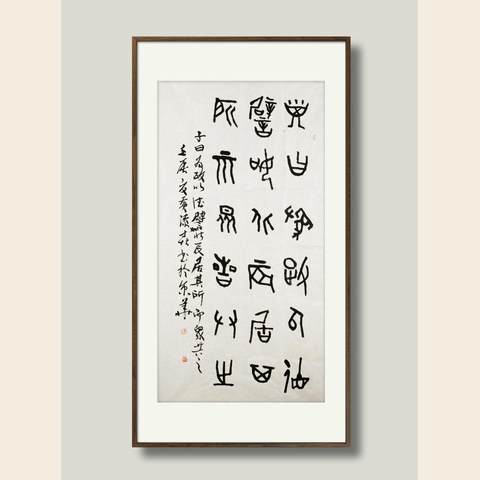 子曰爲政以德
譬如北辰居其
所而眾星共之
子曰為政以德譬如北辰居其所而眾星共之
書於京華